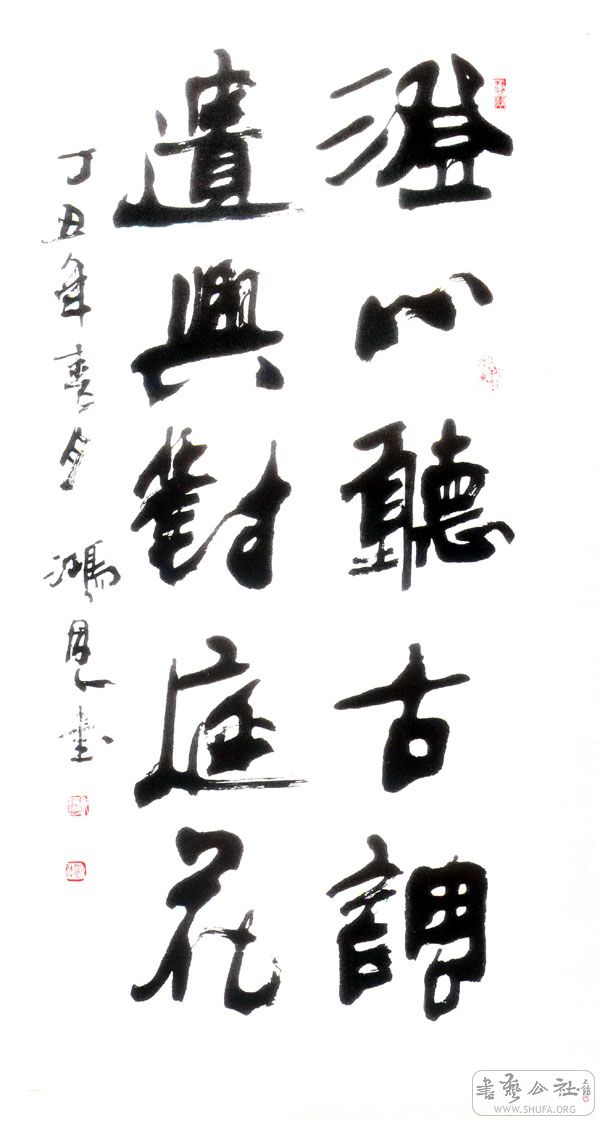 澄心聽古調
遣興對庭花
丁丑年春月 鴻恩書
書藝公社
WWW.SHUFA.ORG